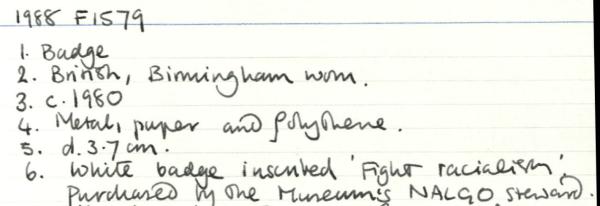 1988 F1579
1. Badge
2. British, Birmingham worn.
3. c.1980
4. Metal, paper and polythene.
5. d. 3.7 cm.
6. White badge inscribed 'Fight racialism',
purchased by the Museum's NALGO steward.